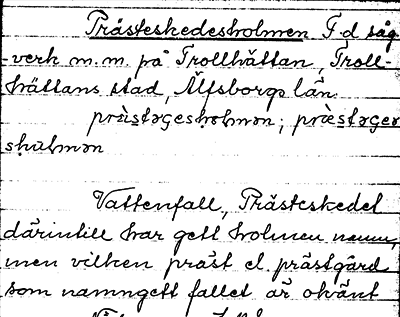 Prästeskedesholmen F.d såg
-verk m.m. på Trollhättan, Troll-
hättans stad, Älfsborgs län.
Vattenfall, Prästeskedet
därintill har gett holmen namn,
men vilken präst el. prästgård
som namngett fallet är okänt